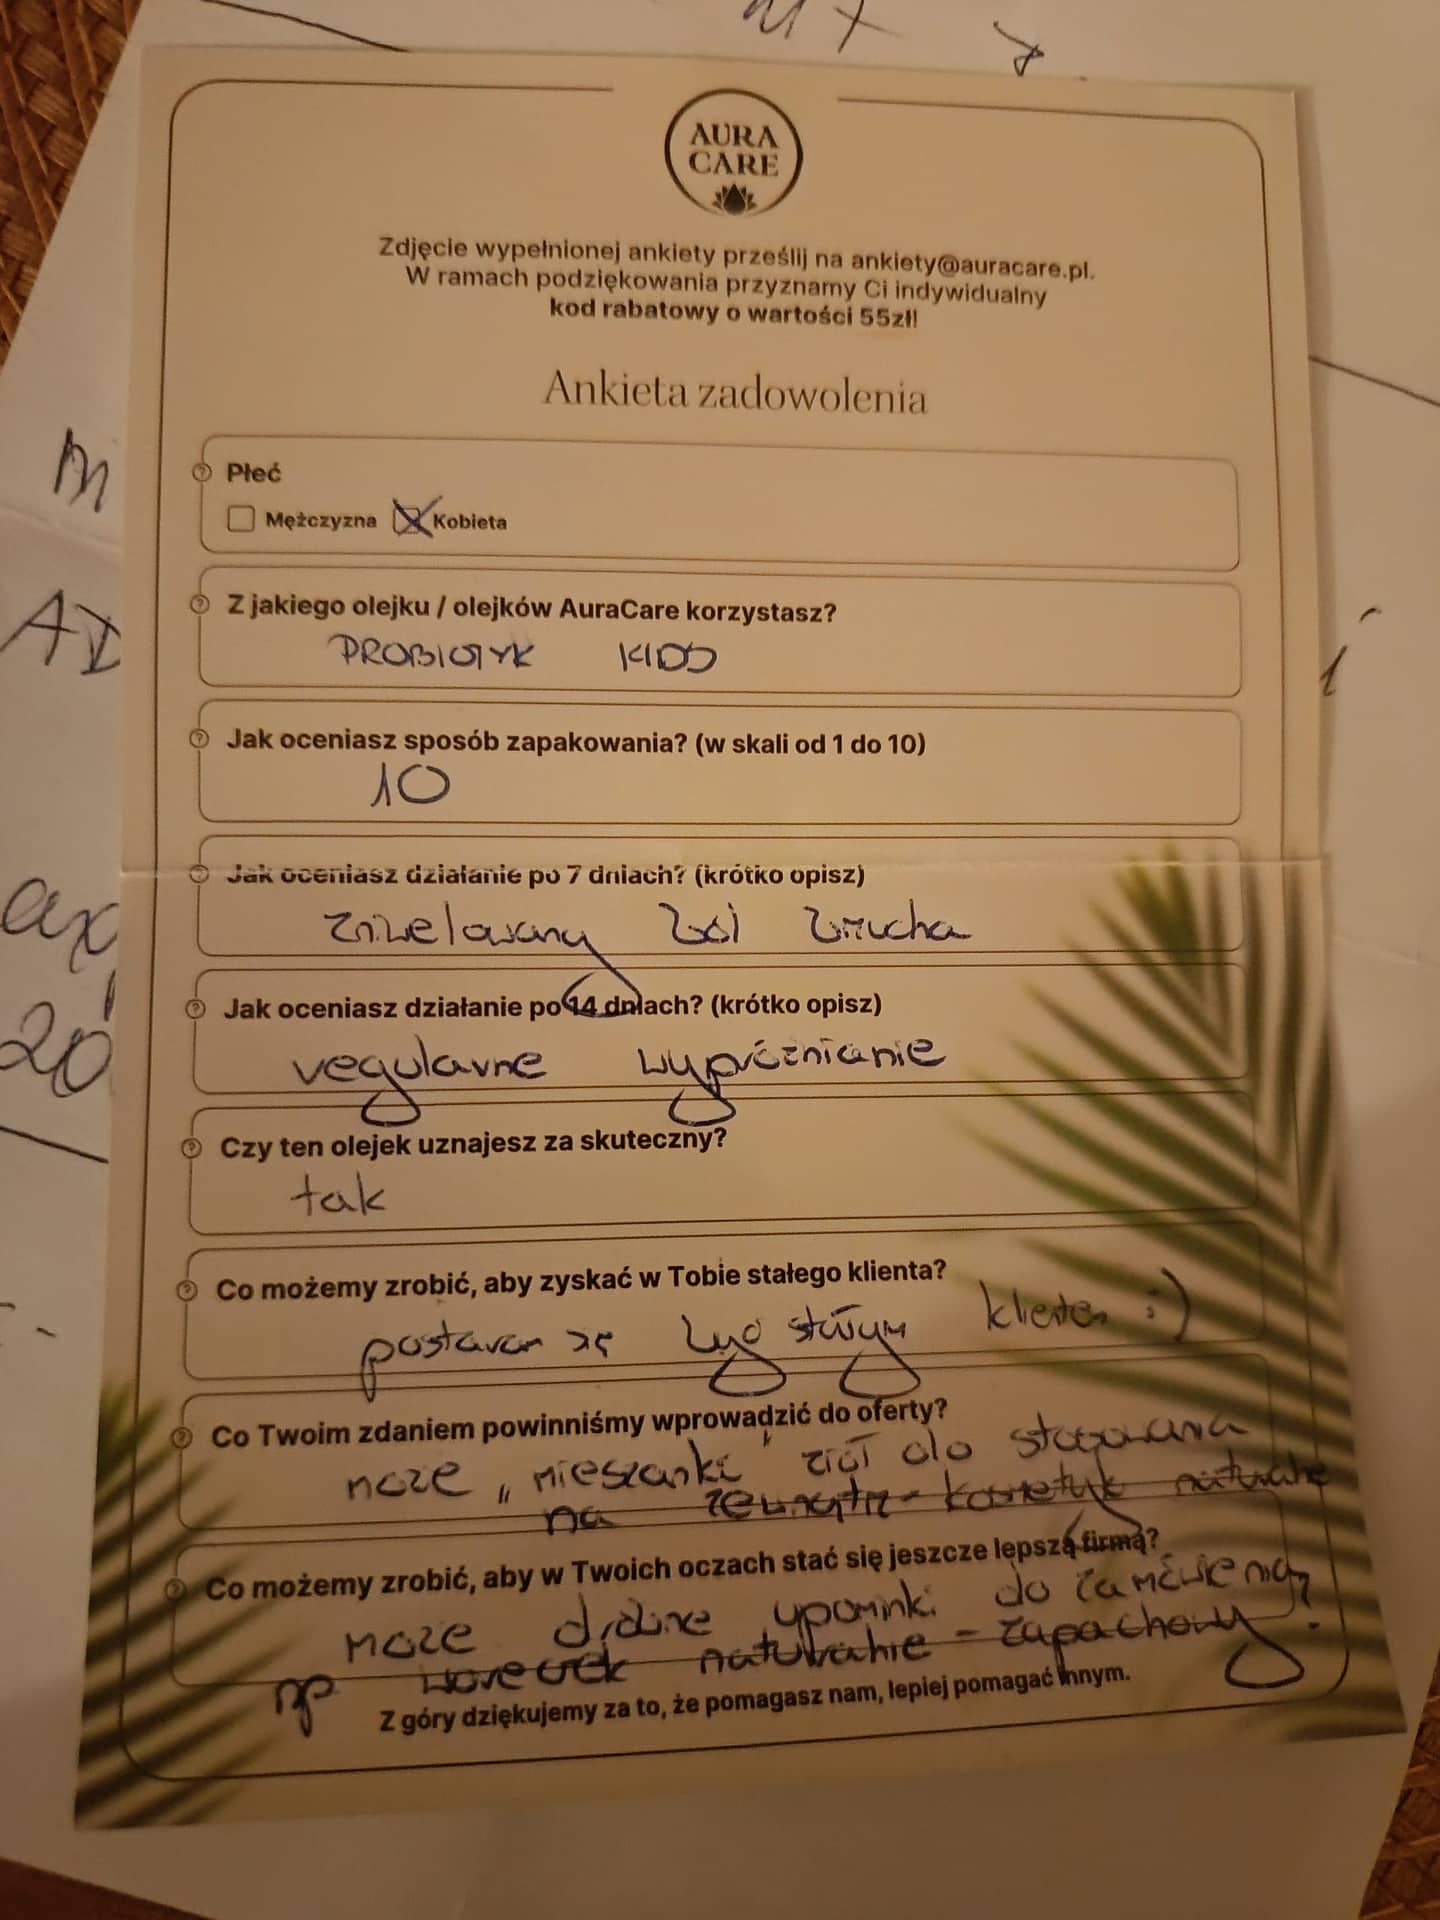 AURA
CARE
Zdjęcie wypełnionej ankiety prześlij na ankiety@auracare.pl.
W ramach podziękowania przyznamy Ci indywidualny
kod rabatowy o wartości 55zł!
Ankieta zadowolenia
Płeć
Mężczyzna Kobieta
Z jakiego olejku / olejków AuraCare korzystasz?
PROBIOTYK KIDS
Jak oceniasz sposób zapakowania? (w skali od 1 do 10)
10
Jak oceniasz działanie po 7 dniach? (krótko opisz)
zniwelowany ból brzucha
Jak oceniasz działanie po 14 dniach? (krótko opisz)
regularne wypróżnianie
Czy ten olejek uznajesz za skuteczny?
tak
Co możemy zrobić, aby zyskać w Tobie stałego klienta?
postaram się być stałym klientem :)
Co Twoim zdaniem powinniśmy wprowadzić do oferty?
może „mieszanki" ziół do stosowania
na zewnątrz - kosmetyk naturalne
Co możemy zrobić, aby w Twoich oczach stać się jeszcze lepszą firmą?
Może drobne upominki do zamówienia?
np woreczek naturalnie - zapachowy
Z góry dziękujemy za to, że pomagasz nam, lepiej pomagać innym.
M
AD
ax
20